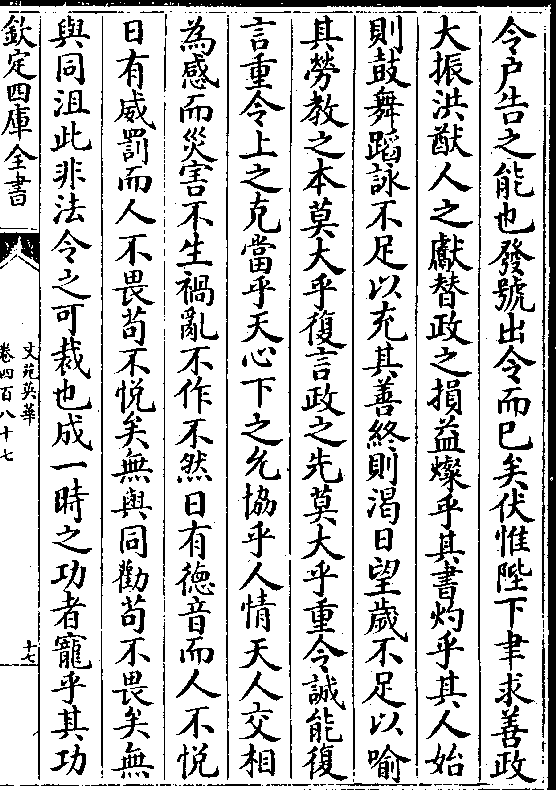 令户告之能也發號出令而已矣伏惟陛下聿求善政
大振洪猷人之獻替政之損益燦乎其書灼乎其人始
則鼓舞蹈詠不足以充其善終則渴日望歲不足以喻
其勞教之本莫大乎復言政之先莫大乎重令誠能復
言重令上之克當乎天心下之允協乎人情天人交相
為感而災害不生禍亂不作不然日有德音而人不悦
日有威罰而人不畏苟不悦矣無與同勸苟不畏矣無
與同沮此非法令之可裁也成一時之功者寵乎其功
欽定四庫全書
文苑英華
卷四百八十七
十七